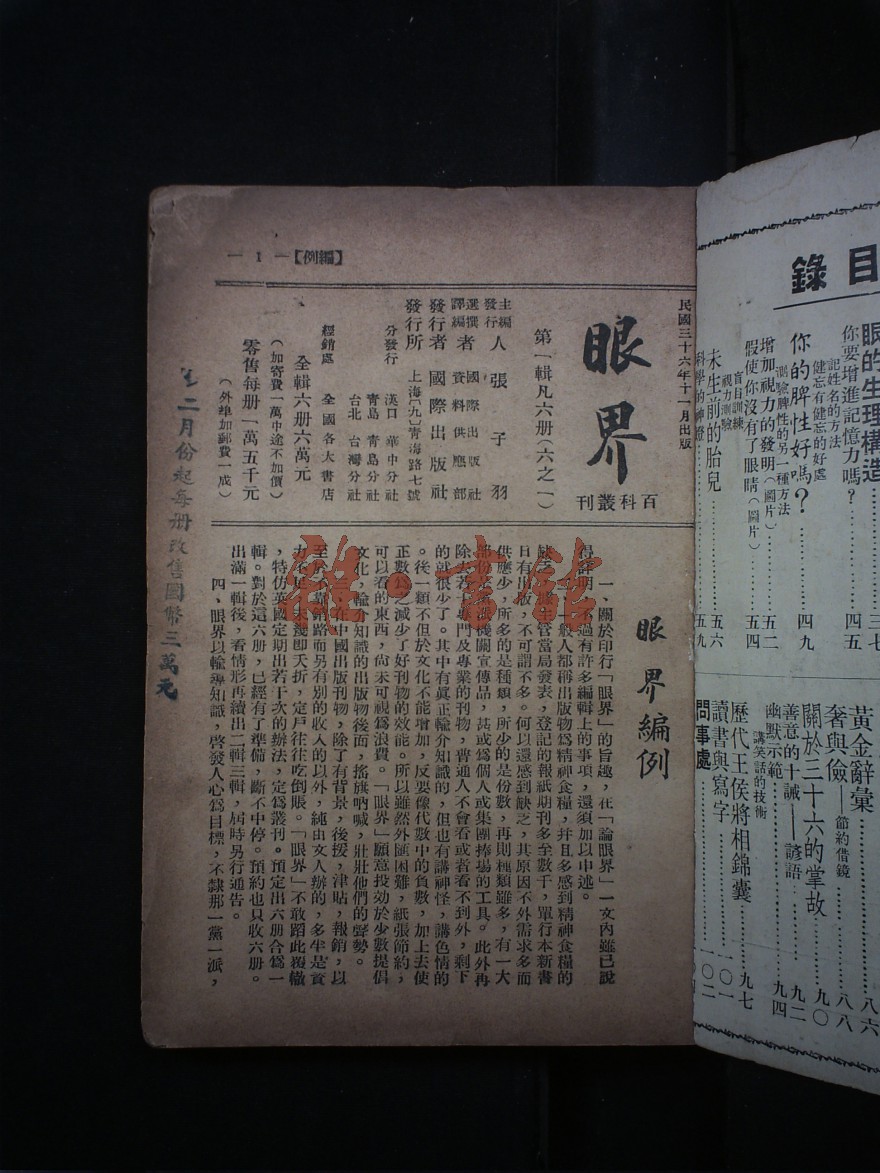 目錄
眼的生理構造 三七
你要增進記憶力嗎? 四五
記姓名的方法
健忘有健忘的好處
你的脾性好嗎? 四九
測驗脾性的另一種方法
增加視力的發明(圖片) 五二
視力測驗
盲目訓練
假使你沒有了眼睛(圖片) 五四
未生前的胎兒 五六
科學的神燈 五九
黃金辭彙 八六
奢與儉——節約借鏡 八八
關於三十六的掌故 九〇
善意的十誡——諺語 九二
幽默示範 九四
講笑話的技術
歷代王侯將相錦囊 九七
讀書與寫字 一〇一
問事處 一〇二
民國三十六年十一月出版
眼界
百科叢刊
第一輯凡六册(六之一)
主編發行人 張子羽
選撰譯編者 國際出版社資料供應部
發行者 國際出版社
發行所 上海(九)青海路七號
分發行 漢口 華中分社
青島 青島分社
台北 台灣分社
經銷處 全國各大書店
全輯六册六萬元
(加寄費一萬中途不加價)
零售每册一萬五千元
(外埠加郵費一成)
二月份起每册改售國幣三萬元
【編例】— 1 —
眼界編例
一、關於印行「眼界」的旨趣,在「論眼界」一文內雖已說
得詳明,不過有許多編輯上的事項,還須加以申述。
二、一般人都稱出版物爲精神食糧,并且多感到精神食糧的
缺乏。據主管當局發表,登記的報紙期刊多至數千,單行本新書
日有出版,不可謂不多。何以還感到缺乏,其原因不外需求多而
供應少,所多的是種類,所少的是份數,再則種類雖多,有一大
部份是黨派機關宣傳品,甚或爲個人或集團捧場的工具。此外再
除去若干專門及專業的刊物,普通人不會看或者看不到外,剩下
的就很少了。其中有眞正輸介知識的,但也有講神怪,講色情的
。後一類不但於文化不能增加,反要像代數中的負數,加上去使
正數爲之減少了好刊物的效能。所以雖然外匯困難,紙張節約,
可以看的東西,尙未可視爲浪費。「眼界」願意投効於少數提倡
文化,輸介知識的出版物後面,搖旗吶喊,壯壯他們的聲勢。
三、在中國出版刊物,除了有背景,後援,津貼,報銷,以
至於不靠銷路而另有別的收入的以外,純由文人辦的,多半是資
力不足,未幾即夭折,定戶往往吃倒賬。「眼界」不敢蹈此覆轍
,特仿英國定期出若干次的辦法,定爲叢刊。預定出六册合爲一
輯。對於這六册,已經有了準備,斷不中停。預約也只收六册。
出滿一輯後,看情形再續出二輯三輯,屆時另行通告。
四、眼界以輸導知識,啓發人心爲目標,不隸那一黨一派,
雜·書館